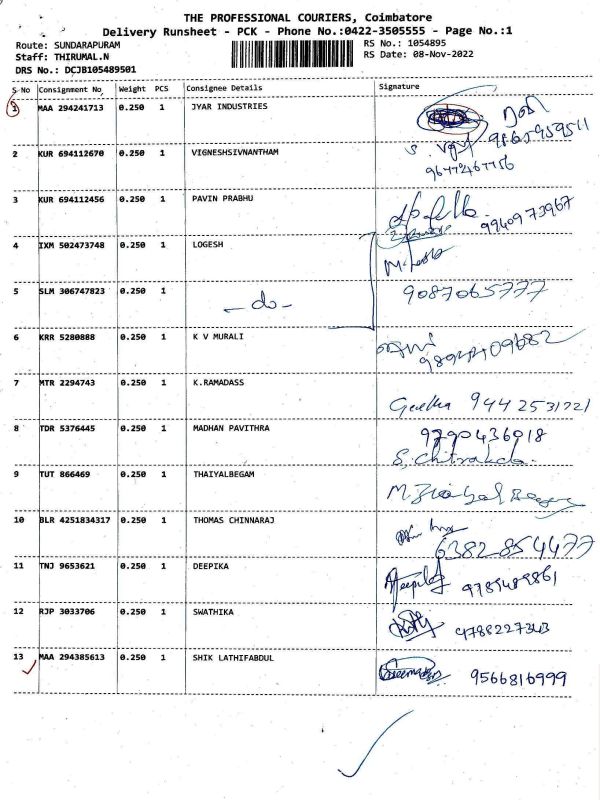 THE PROFESSIONAL COURIERS, Coimbatore
Delivery Runsheet - PCK - Phone No.:0422-3505555 - Page No.:1
Route: SUNDARAPURAM
RS No.: 1054895
Staff: THIRUMAL.N
RS Date: 08-Nov-2022
DRS No.: DCJB105489501
S No Consignment No Weight PCS Consignee Details Signature
1 MAA 294241713 0.250 1 JYAR INDUSTRIES
2 KUR 694112670 0.250 1 VIGNESHSIVNANTHAM
3 KUR 694112456 0.250 1 PAVIN PRABHU
9940973967
4 IXM 502473748 0.250 1 LOGESH
5 SLM 306747823 0.250 1 9087065777
- do -
6 KRR 5280888 0.250 1 K V MURALI
9894409682
7 MTR 2294743 0.250 1 K.RAMADASS
Geetha 9442531721
8 TDR 5376445 0.250 1 MADHAN PAVITHRA 9790436918
S. Chitrakala.
9 TUT 866469 0.250 1 THAIYALBEGAM
10 BLR 4251834317 0.250 1 THOMAS CHINNARAJ
6382854477
11 TNJ 9653621 0.250 1 DEEPIKA
Deepika 9789489861
12 RJP 3033706 0.250 1 SWATHIKA
9788227343
13 MAA 294385613 0.250 1 SHIK LATHIFABDUL
9566816999